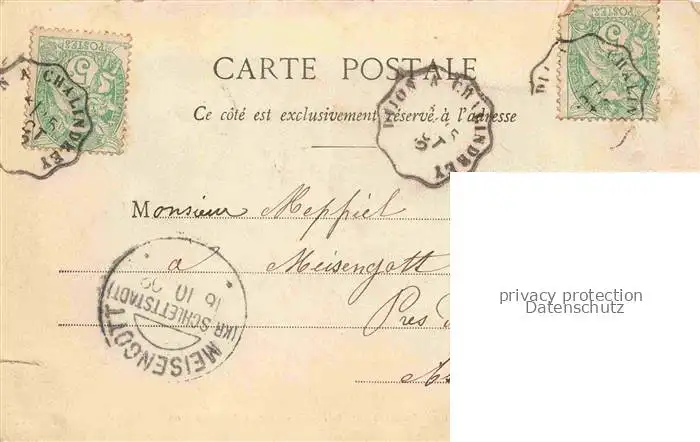 POSTES
5
DIJON A CHALINDREY
CARTE POSTALE
Ce côté est exclusivement réservé à l'adresse
Monsieur Meppiel
a Meisengott
Pres
MEISENGOTT
(KR. SCHLETTSTADT)
16 10
privacy protection
Datenschutz